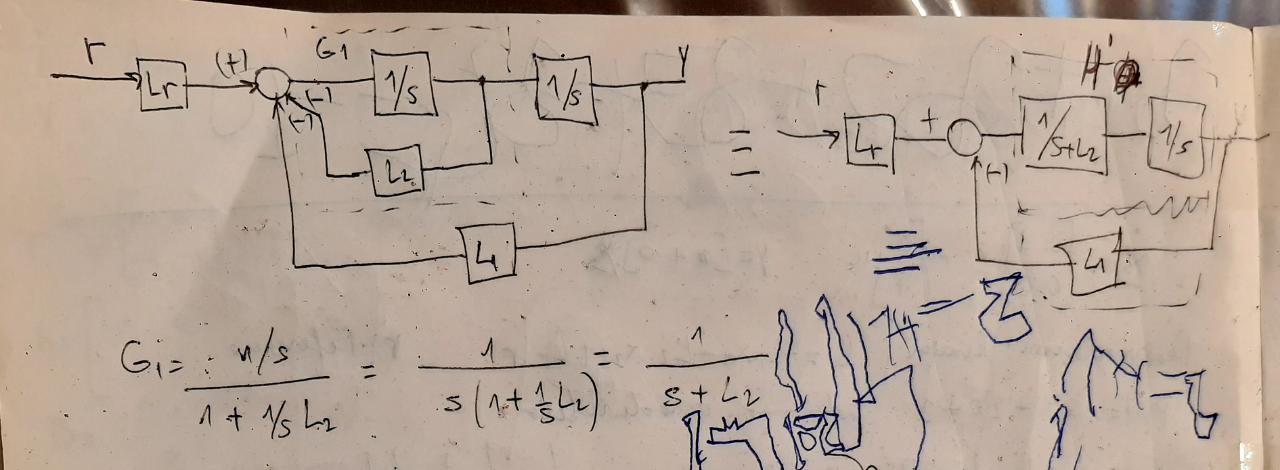 r
Lr
(+)
G1
1/s
1/s
y
(-)
(-)
L2
L1
≡
r
Lr
+
(-)
H'
1/s+L2
1/s
y
L1
G1 = 1/s / 1 + 1/s L2 = 1 / s(1 + 1/s L2) = 1 / s + L2